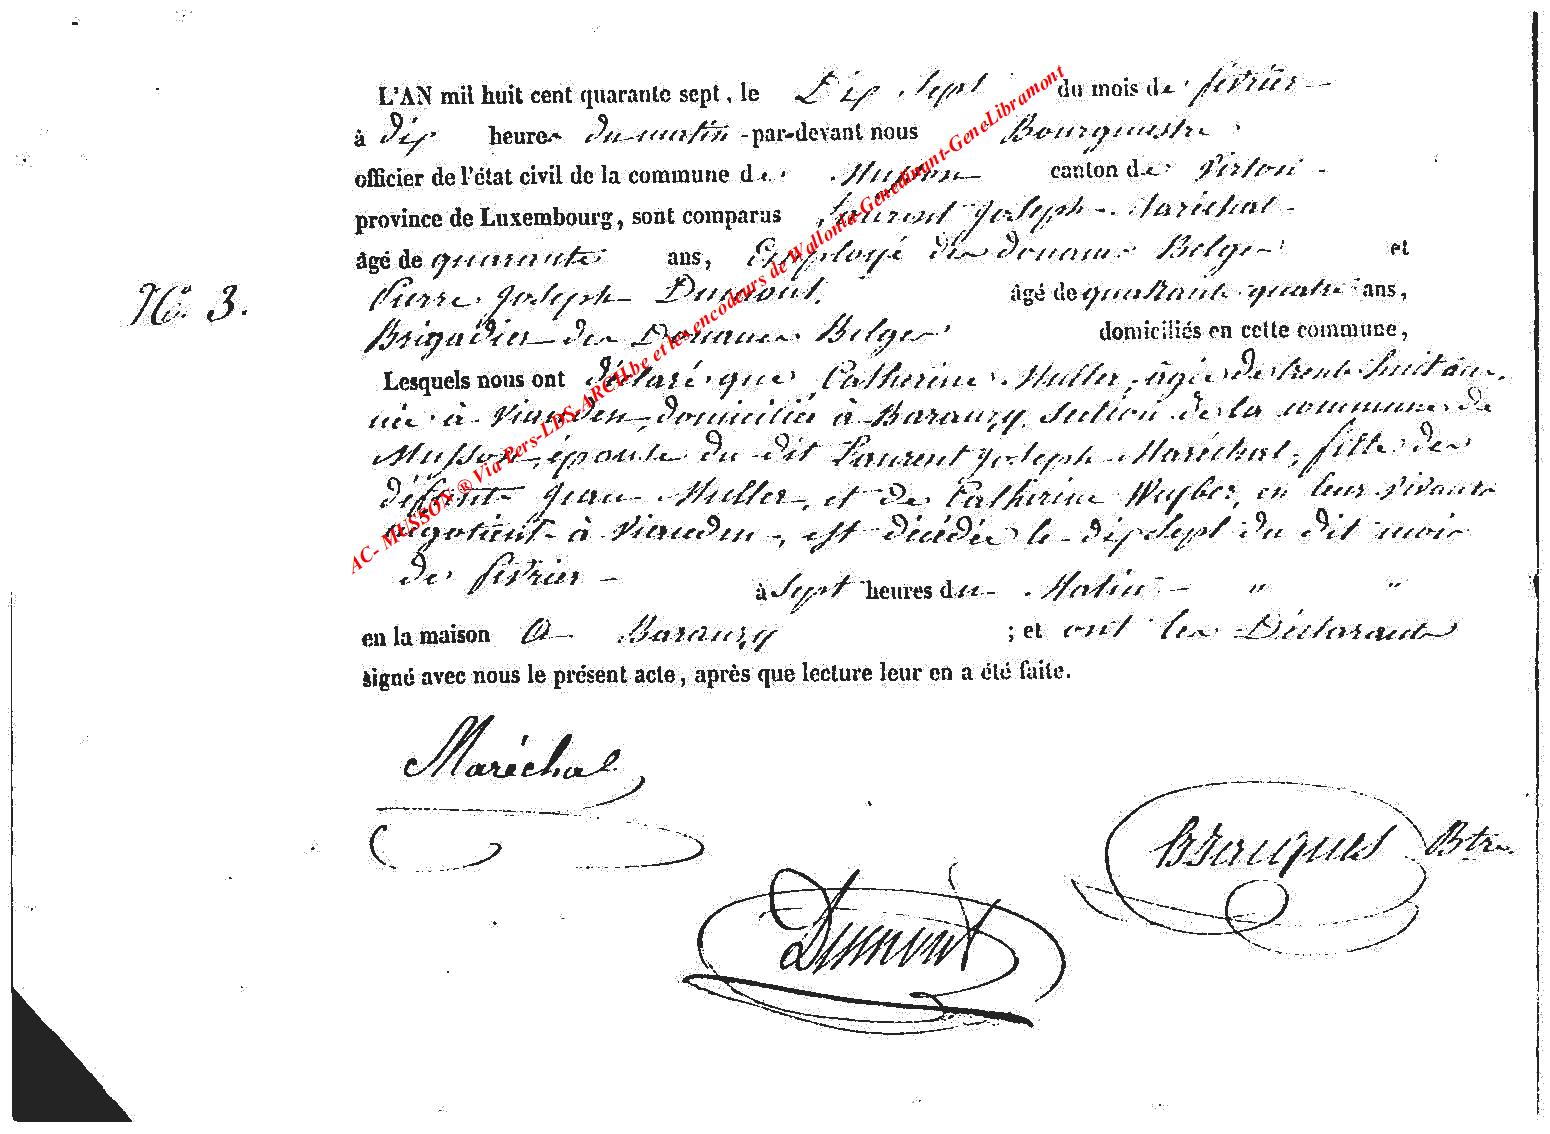 L'AN mil huit cent quarante sept, le Dix Sept du mois de février
à dix heures du matin par-devant nous Bourgmestre
officier de l'état civil de la commune de Musson canton de Virton
province de Luxembourg, sont comparus Laurent Joseph Maréchal
âgé de quarante ans, Employé des douanes Belges et
Pierre Joseph Dumont, âgé de quarante quatre ans,
No. 3.
Brigadier des Douanes Belges domiciliés en cette commune,
Lesquels nous ont déclaré que Catherine Muller, âgée de trente huit ans,
née à Vianden, domiciliée à Baranzy, section de la commune de
Musson, épouse du dit Laurent Joseph Maréchal, fille des
défunts Jean Muller, et de Catherine en leur vivants
négotiant à Vianden, est décédée le dix sept du dit mois
de février à sept heures du Matin " "
en la maison à Baranzy ; et ont les Déclarants
signé avec nous le présent acte, après que lecture leur en a été faite.
Maréchal
Dumont
Btre.
AC- MUSSON ® Via Pers-LDS-ARCH.be et les encodeurs de Wallonia-Genedinant-GeneLibramont